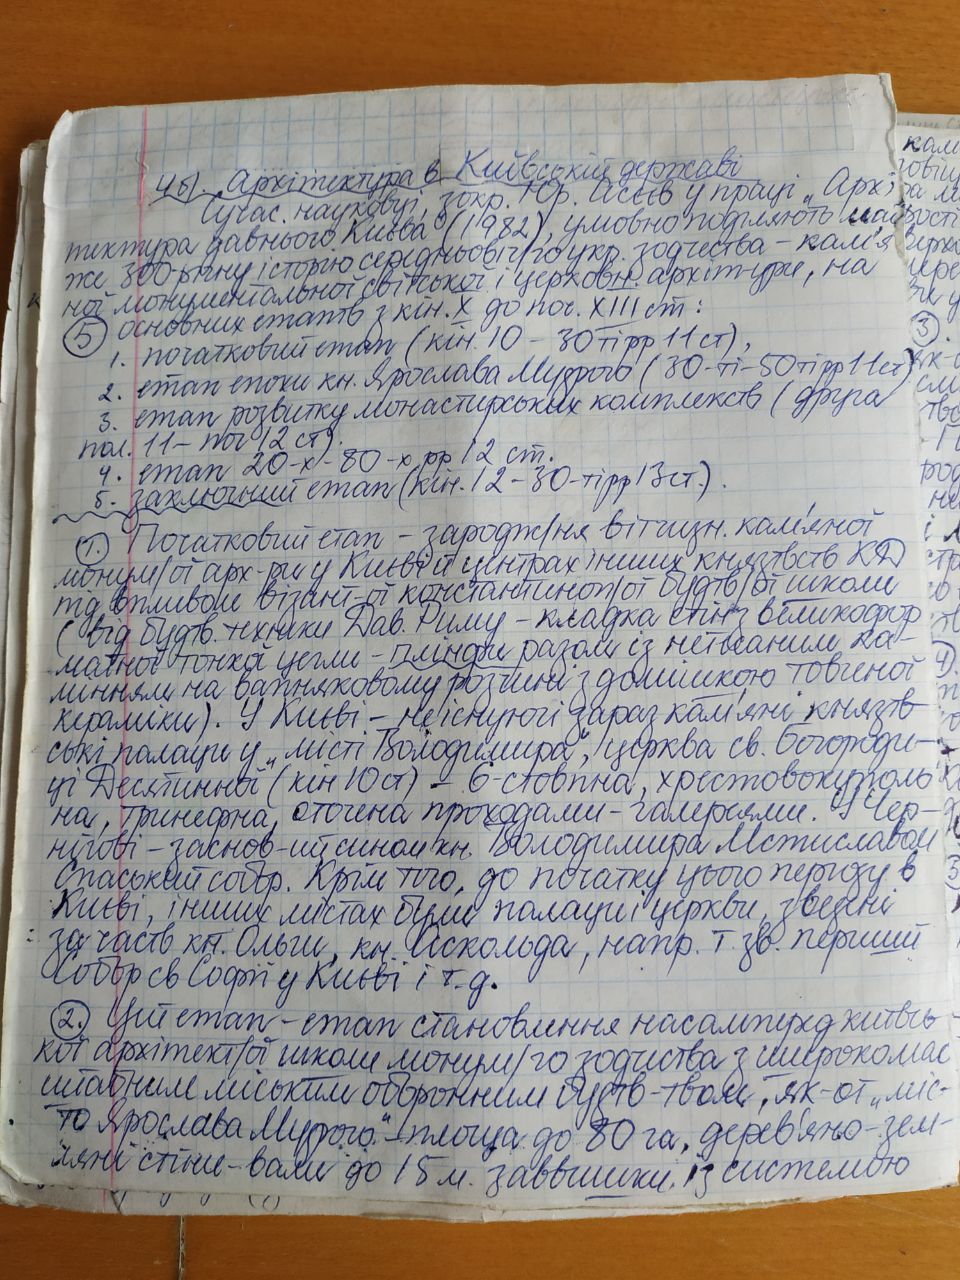 4б) „Архітектура в Київській державі
Сучас. науковці, зокр. Юр. Асєєв у праці „Архі-
тектура давнього Києва" (1982), умовно поділяють май-
же 300-річну історію середньовіч/го укр. зодчества – кам'я
ної монументальної світської і церковн. архітектури, на
5 основних етапів з кін. X до поч. XIII ст:
1. початковий етап (кін. 10 – 30ті рр 11 ст),
2. етап епохи кн. Ярослава Мудрого (30-ті – 50ті рр 11 ст)
3. етап розвитку монастирських комплексів (друга
пол. 11 – поч 12 ст).
4. етап 20-х – 80-х рр 12 ст.
5. заключний етап (кін. 12 – 30-ті рр 13 ст.).
1. Початковий етап – зародж/ня вітчизн. кам'яної
монум/ої арх-ри у Києві й центрах інших князівств КД
під впливом візант-ої константиноп/ої будів/ої школи
(від будів. техніки Дав. Риму – кладка стін з великофор
матної тонкої цегли – плінфи разом із нетесаним ка-
мінням на вапняковому розчині з домішкою товченої
кераміки). У Києві – неіснуючі зараз кам'яні князів-
ські палаци у „місті Володимира", церква св. Богороди-
ці Десятинної (кін 10 ст) – 6-стовпна, хрестовокуполь
на, тринефна, оточена проходами – галереями. У Чер-
нігові – заснов-ий сином кн. Володимира Мстиславом
Спаський собор. Крім того, до початку цього періоду в
Києві, інших містах були палаци і церкви, зведені
за часів кн. Ольги, кн. Аскольда, напр. т. зв. перший
Собор св Софії у Києві і т.д.
2. Цей етап – етап становлення насамперед київсь-
кої архітект/ої школи монум/го зодчества з широкомас
штабним міським оборонним будів-твом, як-от „міс-
то Ярослава Мудрого" – площа до 80 га, дерев'яно-зем-
ляні стіни – вали до 15 м. заввишки із системою